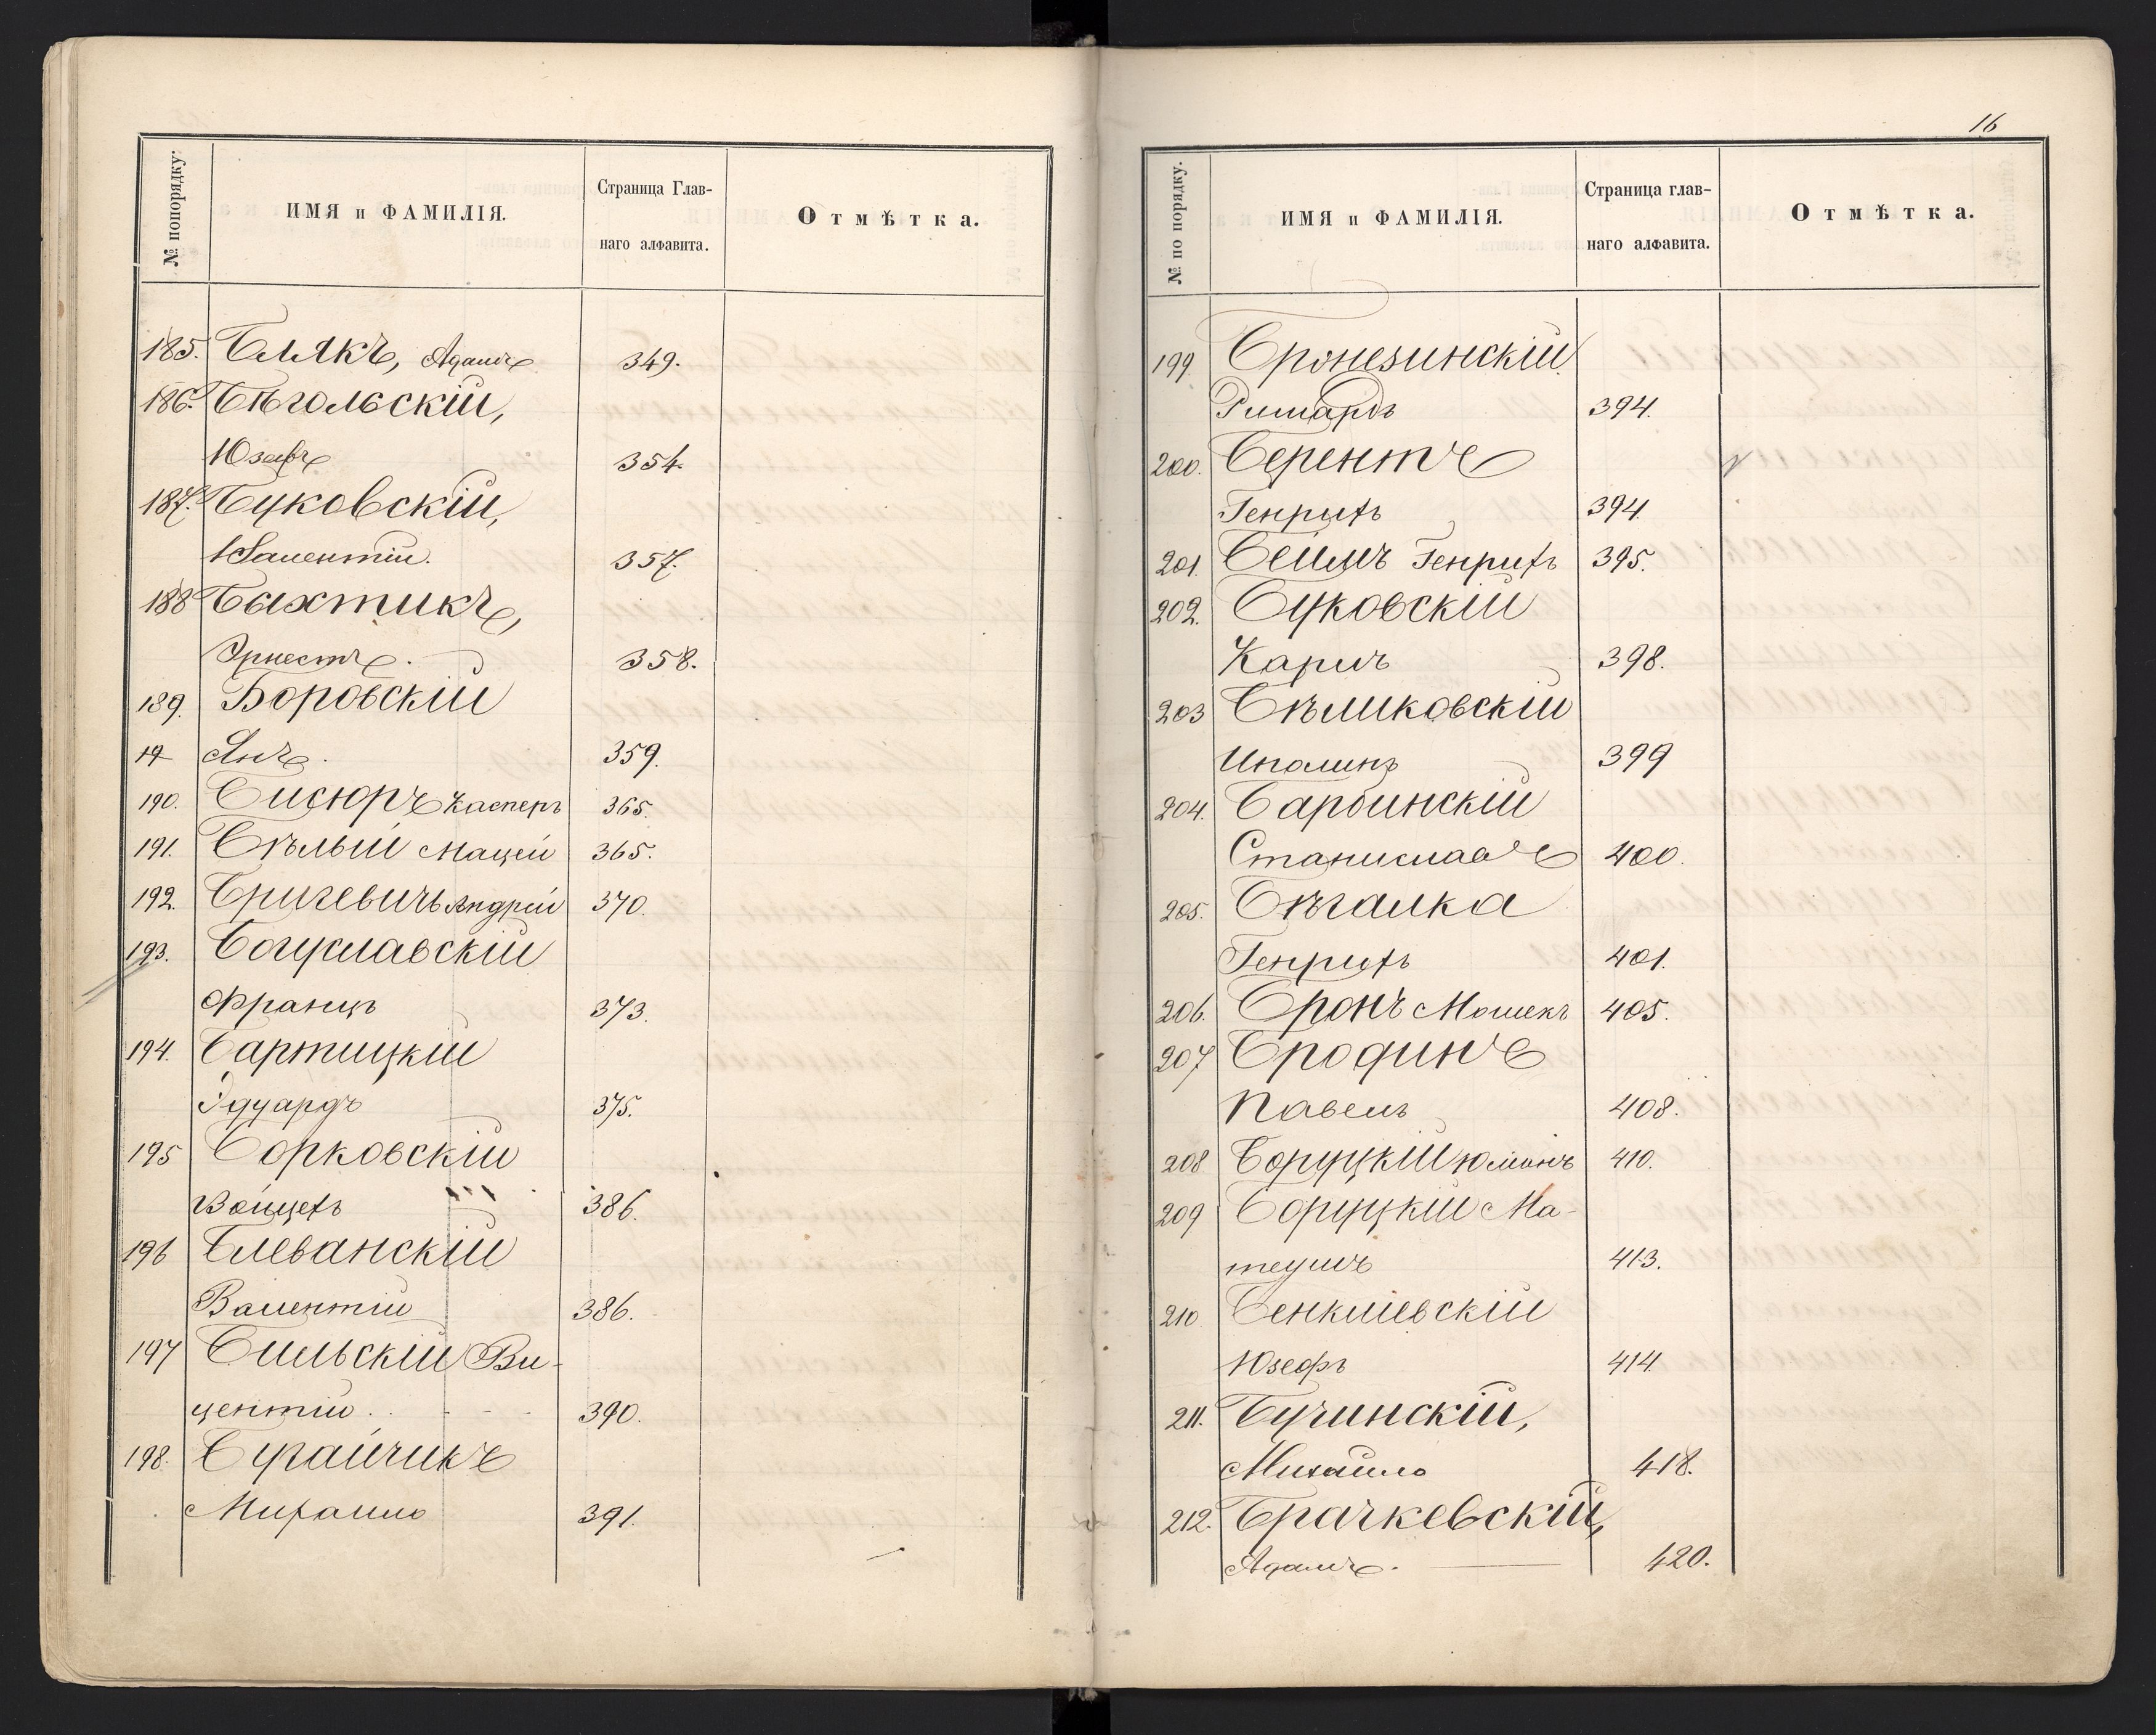 № попорядку.
ИМЯ и ФАМИЛІЯ.
Страница Глав-
наго алфавита.
Отмѣтка.
185. Блякъ, Адамъ 349.
186. Бѣгольскій,
Юзефъ 354.
187. Буковскій,
Валентій. 357.
188 Быхтикъ,
Эрнестъ. 358.
189. Боровскій
19 Янъ. 359.
190. Бисюръ Касперъ 365.
191. Бѣлый Мацей 365.
192. Бригевичъ Андрей 370.
193. Богуславскій
Францъ 373.
194. Бартицкій
Эдуардъ 375.
195 Борковскій
Войцехъ 386.
196 Блеванскій
Валентій 386.
197 Бильскій Ви-
центій 390.
198. Бугайчикъ
Михаило 391.
16
№ по порядку.
ИМЯ и ФАМИЛІЯ.
Страница глав-
наго алфавита.
Отмѣтка.
199 Бронезинскій
Ришардъ 394.
200. Берентъ
Генрихъ 394
201. Генрихъ 395.
202. Буковскій
Кароль 398.
203 Бѣликовскій
Иполинъ 399
204. Барбинскій
Станиславъ 400.
205. Бѣгалка
Генрихъ 401.
206. Бронъ Мошекъ 405.
207 Бродинъ
Павелъ 408.
208 Боруцкій 410.
209 Боруцкій Ма-
теушъ 413.
210 Бенклевскій
Юзефъ 414.
211. Бучинскій,
Михайло 418.
212. Брачкевскій,
Адамъ. 420.